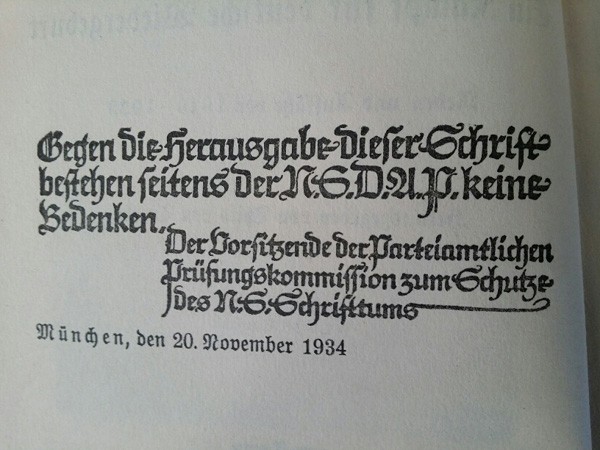 Gegen die Herausgabe dieser Schrift
bestehen seitens der N.S.D.A.P. keine
Bedenken.
Der Vorsitzende der Parteiamtlichen
Prüfungskommission zum Schutze
des N.S. Schrifttums
München, den 20. November 1934